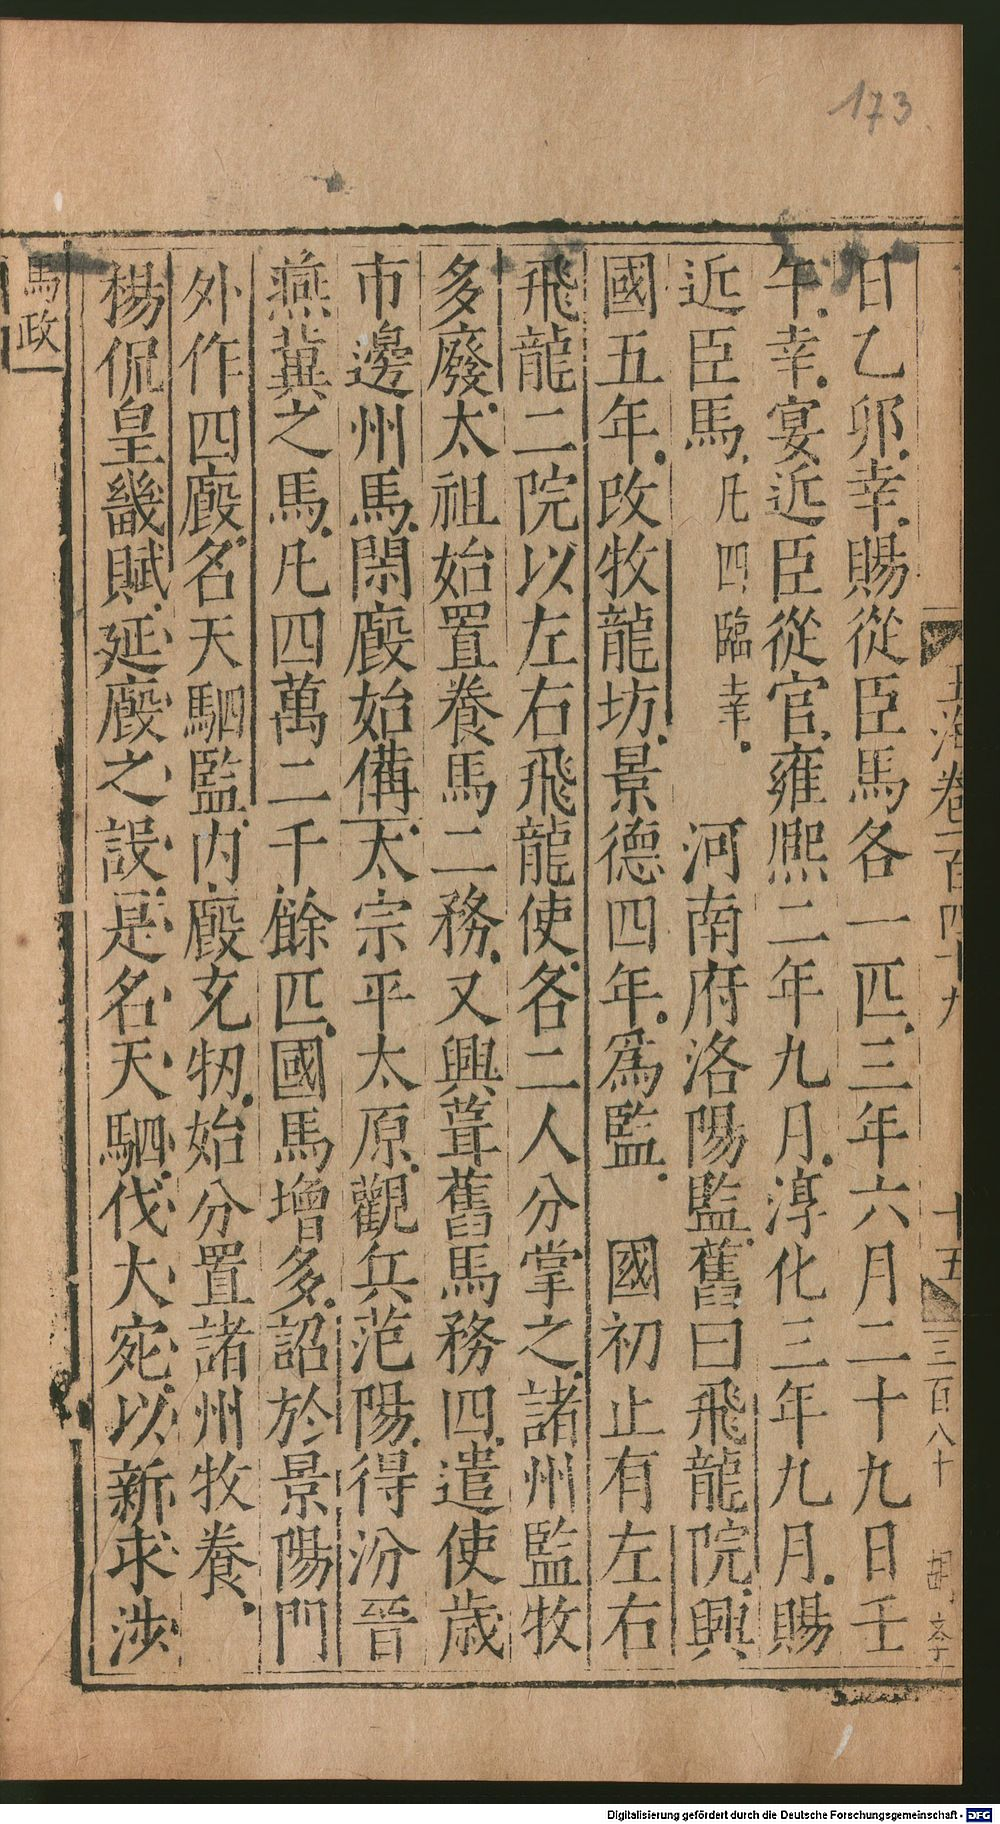 173
玉海卷一百四十九 十五 三百八十
日乙卯幸賜從臣馬各一匹三年六月二十九日壬
午幸宴近臣從官雍熈二年九月淳化三年九月賜
近臣馬凡四臨幸 河南府洛陽監舊曰飛龍院興
國五年改牧龍坊景德四年爲監 國初止有左右
飛龍二院以左右飛龍使各二人分掌之諸州監牧
多廢太祖始置養馬二務又興葺舊馬務四遣使歲
市邊州馬閑廄始備太宗平太原觀兵范陽得汾晉
燕冀之馬凡四萬二千餘匹國馬增多詔於景陽門
外作四廄名天駟監内廄充牣始分置諸州牧養
楊侃皇畿賦延廄之設是名天駟伐大宛以新求涉
馬政
Digitalisierung gefördert durch die Deutsche Forschungsgemeinschaft - DFG